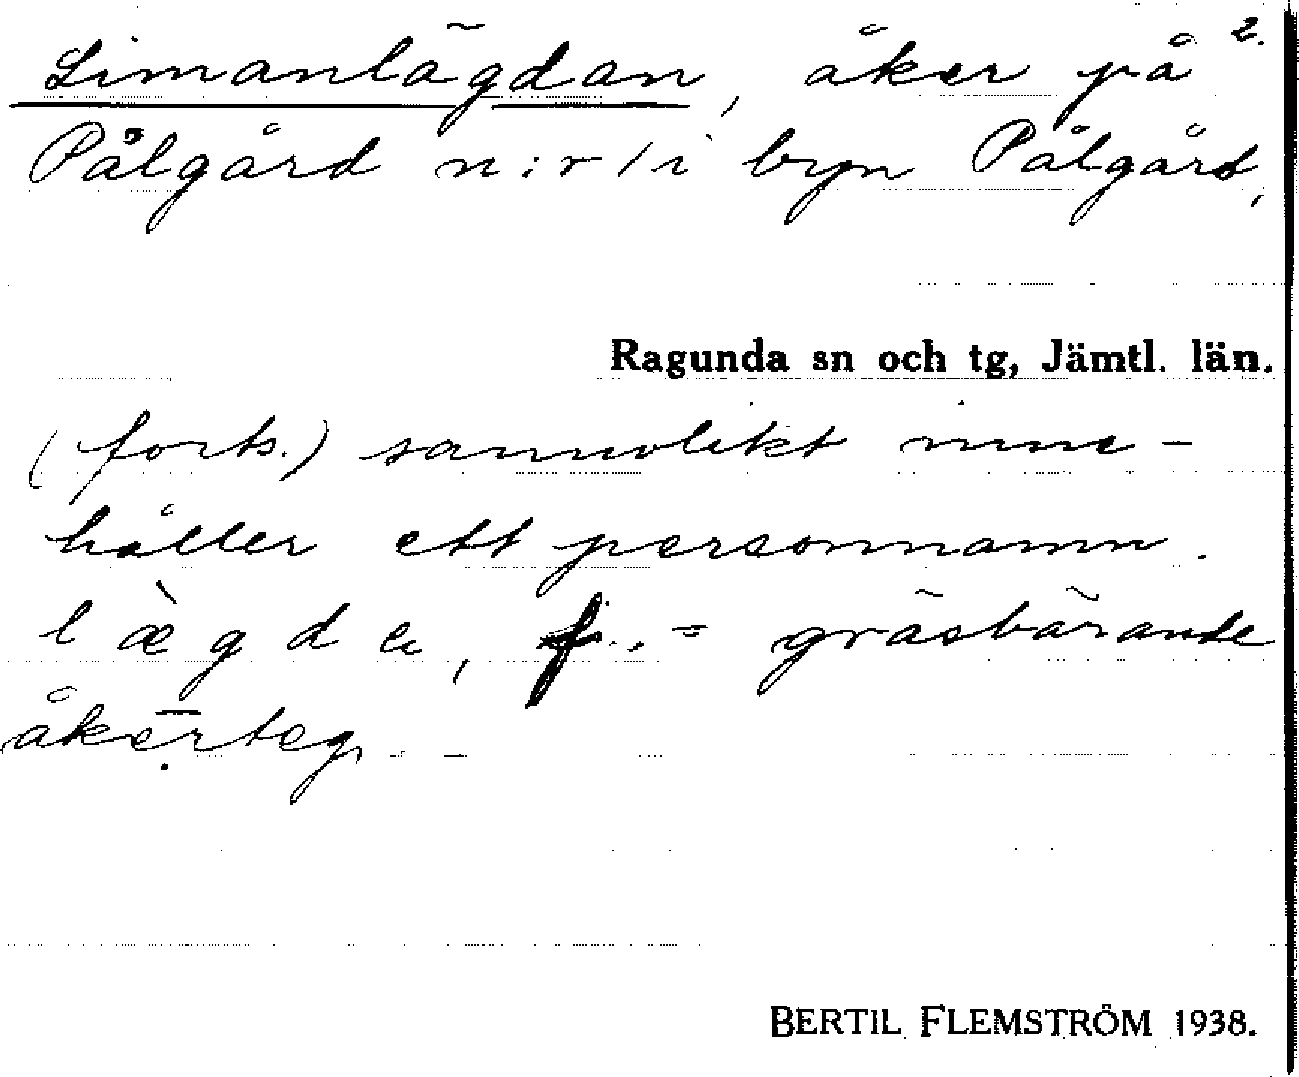 Limanlägdan, åker på 2.
Pålgård n:r 1 i byn Pålgård,
Ragunda sn och tg, Jämtl. län.
(forts.) sannolikt inne-
håller ett personnamn.
lægda, f. = gräsbärande
åkerteg.
BERTIL FLEMSTRÖM 1938.